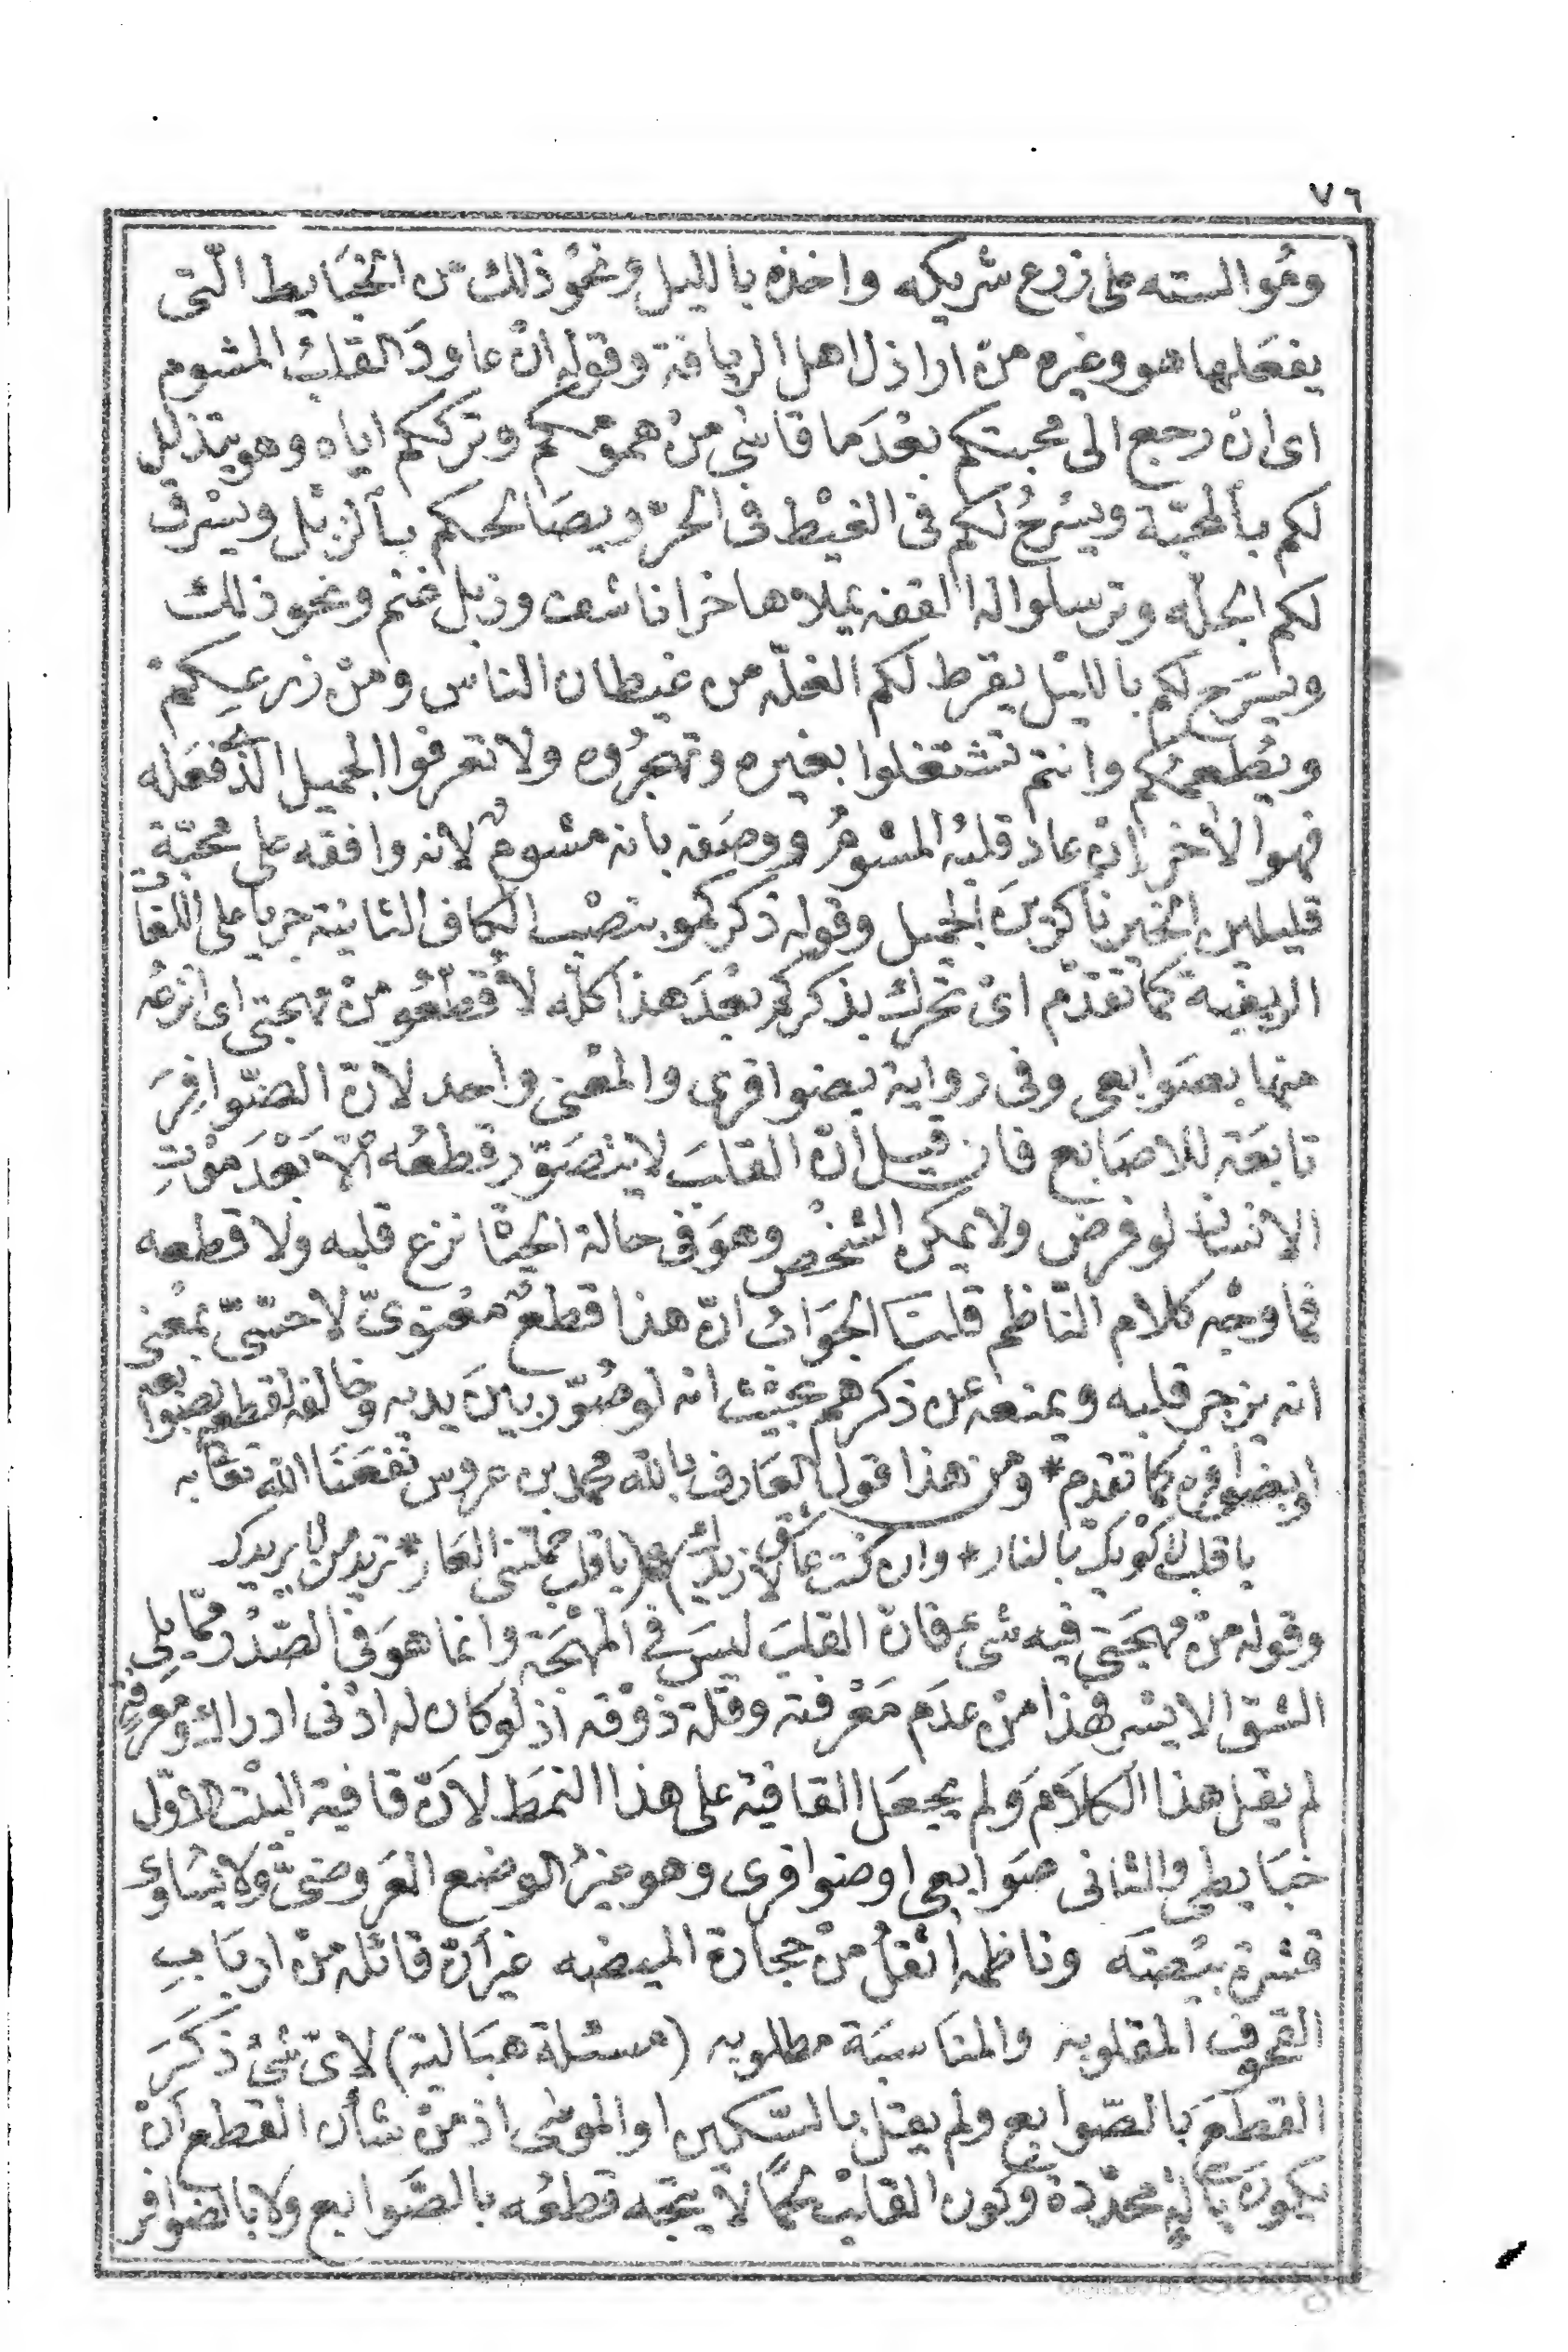 ٧٦
وهُو السته على زرع شريكه واخذه بالليل ونحوُ ذلك من الخبَايط الّتى
يفعَلها هو وغيره من اراذل اهل الريافة وقوله انْ عاودَ القلبُ المشوم
اى ان رجع الى محبتكم بعْدَ ما قاسَى منْ همومكم وترككم اياه وهو يتذلل
لكم بالمحبّة ويسْرحُ لكم فى الغيْط فى الحرّ ويصَالحكم بالزبْل ويسْرق
لكم الجلّه وترسلوا له القفه يملاها خرا ناشف وزبل غنم ونحو ذلك
ويسَرح لكم بالليْل يقرط لكم الغلّه من غيطان الناس ومنْ زرعِكمْ
ويُطعمكم وانتم تشتغلوا بغيره وتهجرُوه ولا تعرفوا الجميل الّذى فعَله
فهو الاخر إن عاد قلبه المشومُ ووصَفه بانه مشومٌ لانه وافقه على محبّة
قليلين الخير ناكرينَ الجميل وقوله ذكركمو بنصْب الكاف الثانية جرياً على اللغات
الريفية كما تقدّم اىْ تحرك بذكركم بعْدَ هذا كلّه لأقطّعُو منْ مهجتى اى انزعُه
منها بصَوابعى وفى رواية بضوافرى والمعْنى واحد لانّ الضّوافِرَ
تابعَة للاصَابع فان قيل انّ القلبَ لايتصَوّر قطعُه الاّ بَعْدَ مَوْتِ
الانسان لو فرض ولا يمكن الشخْص وهوَ فى حالة الحيٰاة نزع قلبه ولا قطعه
فما وجْه كلام النّاظم قلنَا الجوَابُ انّ هذا قطعٌ معْنوىّ لاحسّىّ بمعْنى
انه يزجر قلبه ويمنعه عن ذكرهم بحيْث انه لو صُوّر بينَ يديه وخالفه لقطعه بصوابعه
او بضوافره كما تقدم * ومن هذا قول العَارف بالله محمد بن عروس نفعَنَا الله تعالى به
يا قلب لاكْويك بالنار * وان كنت عاشق لازيدك) * (يا قلب حملتنى العَار * تريد من لا يريدك
وقوله منْ مهجَتى فيه شىء فانّ القلبَ ليسَ فى المهْجَة وانما هوَ فى الصّدْر ممّا يلِى
الشق الايسر فهذا منْ عدَم مَعْرفته وقلّة ذوْقه اذ لو كان له ادْنى ادراك ومعرفةٍ
لم يقل هذا الكلامَ ولم يجعَل القافية على هذا النمَط لانّ قافية البيْت الاوّل
خبَايطى والثانى صَوابعى او ضوافرى وهو غيرُ الوضع العَروضىّ ولا يُسَاوى
قشرة بيْضَه وناظمه اثقلُ منْ حجارة الميضه غير أنّ قائله منْ اربَابِ
القحوف المقلوبه والمنَاسبَة مطلوبه (مسئلة هبَالية) لاىّ شىْء ذكَرَ
القطعَ بَالصّوابع ولم يقل بالسّكين او الموسى اذ منْ شأن القطع أنْ
يكونَ بآلةٍ محدّدة وكون القلبْ لحمًا لا يتجّه قطعُه بالصّوابع ولا بالضوافر